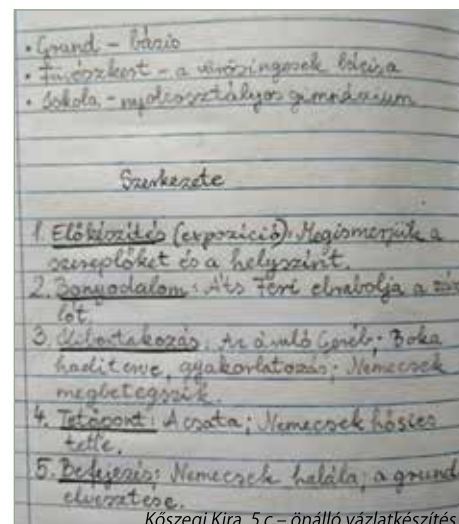 • Grund – bázis
• Füvészkert – a vörösingesek bázisa
• Iskola – nyolcosztályos gimnázium
Szerkezete
1. Előkészítés (expozíció): Megismerjük a
szereplőket és a helyszínt.
2. Bonyodalom: Áts Feri elrabolja a zász
lót.
3. Kibontakozás: Az áruló Geréb; Boka
haditerve, gyakorlatozás; Nemecsek
megbetegszik.
4. Tetőpont: A csata; Nemecsek hősies
tette.
5. Befejezés: Nemecsek halála; a grund
elvesztése.
Kőszegi Kira, 5.c – önálló vázlatkészítés